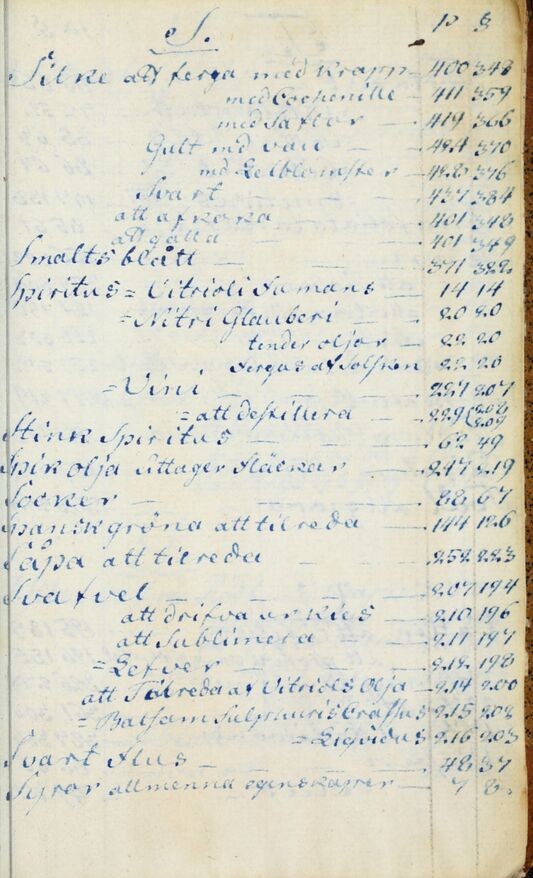 S. p §
Silke att ferga med Krapp 400 348
med Cochenille 411 359
med Saflor 419 366
Gult med vau 424 370
md Gelblomster 428 376
Svart 437 384
att afkoka 401 348
att gälla 401 349
Smalts blått 371 322
Spiritus = Vitrioli Fumans 14 14
= Nitri Glauberi 20 20
tender oljor 22 20
fergas af Solsken 22 20
= Vini 227 207
= att destillera 229 (208 209
Stink Spiritus 62 49
Spik olja uttager fläckar 247 219
Socker 82 67
Spansk gröna att tilreda 144 126
Såpa att tilreda 252 223
Svafvel 207 194
att drifva ur Kies 210 196
att Sublimera 211 197
= Lefver 212 198
att Tilreda af Vitriols Olja 214 200
= Balsam Sulphuris Crassus 215 202
= Liqvidus 216 203
Svart flus 48 37
Syror allmenna egenskaper 7 8.